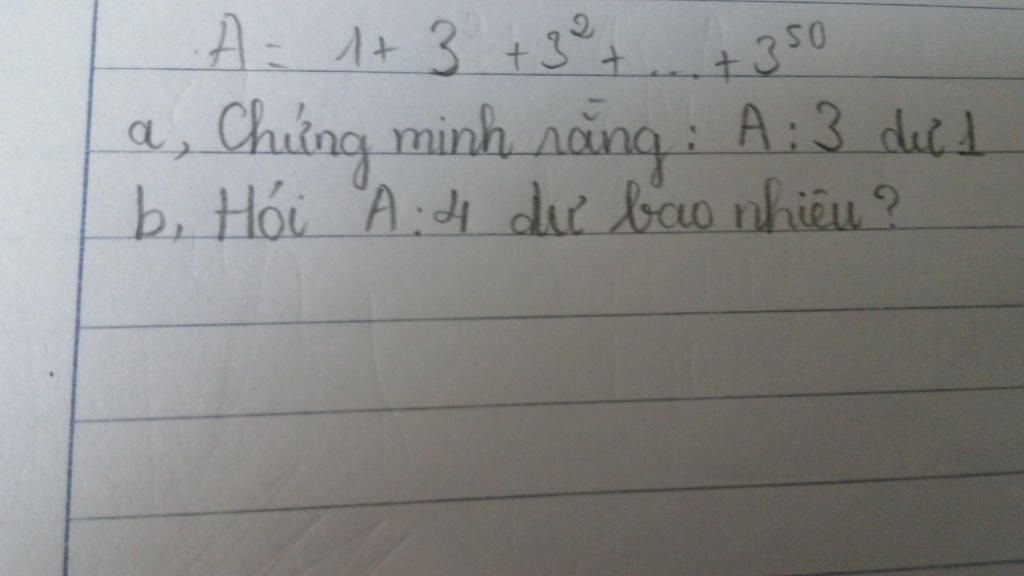 A = 1 + 3 + 3² + ... + 3⁵⁰
a, Chứng minh rằng : A : 3 dư 1
b, Hỏi A : 4 dư bao nhiêu ?